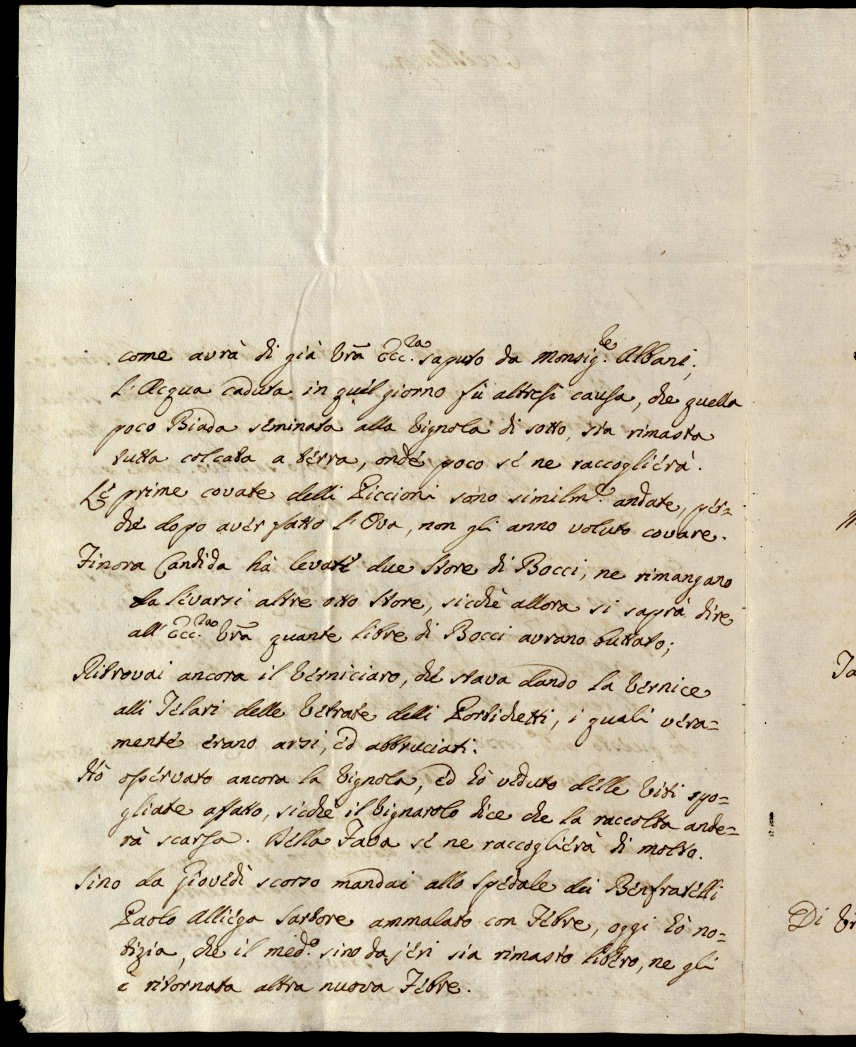 come avrà di già Vrã Ecc.za saputo da Monsig.re Albani;
L'Acqua caduta in quel giorno fù altresi causa, che quella
poco Biada seminata alla Vignola di sotto, sia rimasta
tutta colcata a terra, onde poco se ne raccoglierà.
Le prime covate delli Piccioni sono similm.te andate, per-
che dopo aver fatto l'Ova, non gli anno voluto covare.
Finora Candida hà levati due Store di Bocci, ne rimangano
da levarsi altre otto Store, sicchè allora si saprà dire
all'Ecc.za Vrã quante libre di Bocci avrano buttato;
Ritrovai ancora il Verniciaro, che stava dando la Vernice
alli Telari delle Vetrate delli Portichetti, i quali vera-
mente erano arsi, ed abbruciati.
Hò osservato ancora la Vignola, ed hò veduto delle Viti spo-
gliate affatto, sicchè il Vignarolo dice che la raccolta ande-
rà scarsa. Della Fava se ne raccoglierà di molto.
Sino da Giovedì scorso mandai allo Spedale dei Benfratelli
Paolo Alliega Sartore ammalato con Febre, oggi hò no-
tizia, che il med.o sino da jeri sia rimasto libero, ne gli
è ritornata altra nuova Febre.
Di